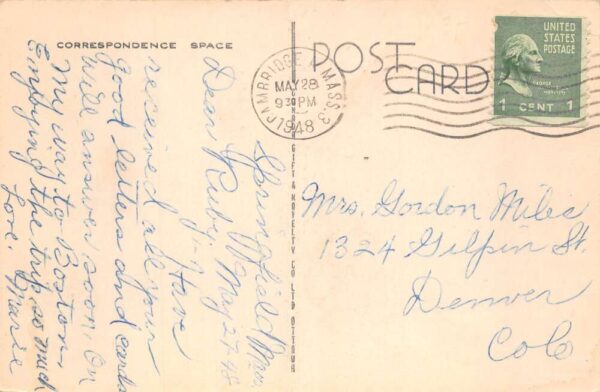 CORRESPONDENCE SPACE
POST
CARD
CAMBRIDGE MASS. 3
MAY 28
9 30 PM
1948
UNITED
STATES
POSTAGE
1 CENT 1
GIFT & NOVELTY CO LTD
Springfield Mass
May 27-48
Dear Ruby:- Have
received all your
good letters and cards
Will answer soon. On
my way to Boston,
Enjoying the trip so much
Love. Marie
Mrs. Gordon Miles
1324 Gilpin St.
Denver
Colo